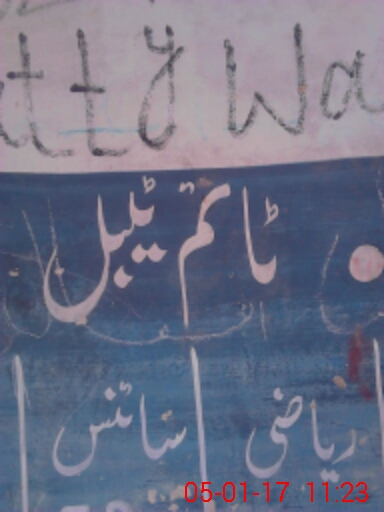 atty Wa
ٹائم ٹیبل
ریاضی سائنس
05-01-17 11:23